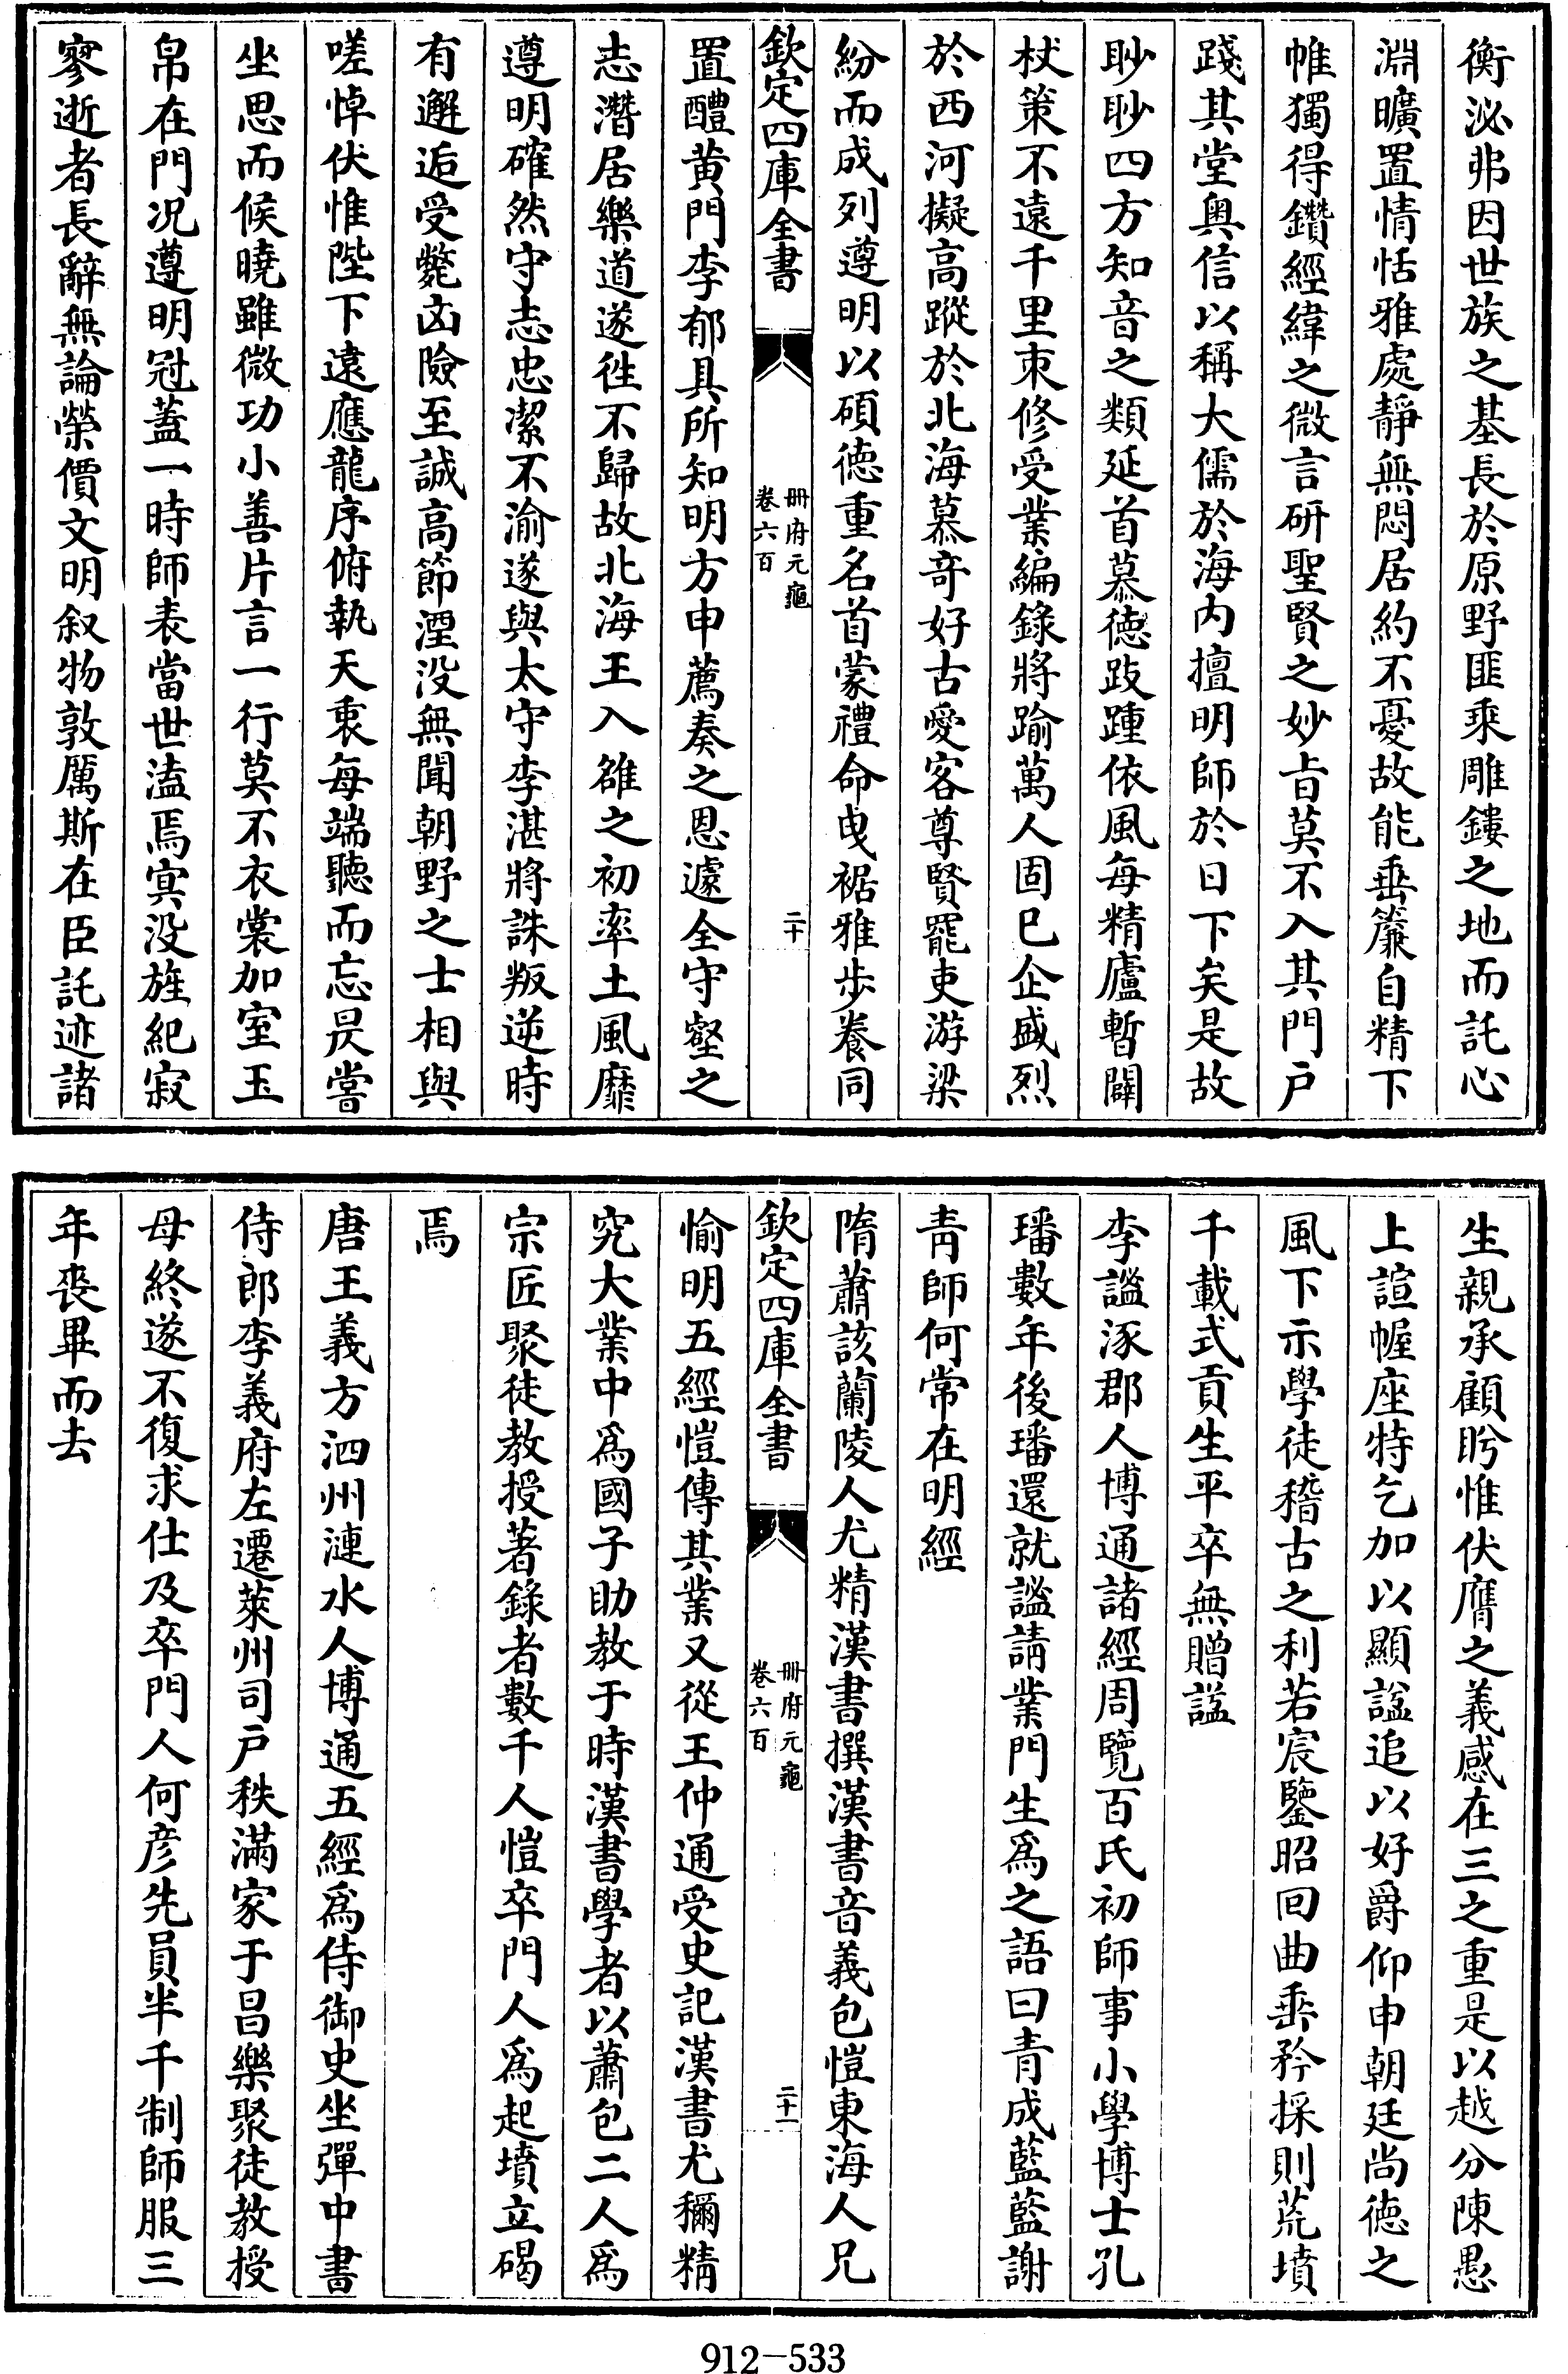 衡泌弗因世族之基長於原野匪乘雕鏤之地而託心
淵曠置情恬雅處靜無悶居約不憂故能垂簾自精下
帷獨得鑽經緯之微言研聖賢之妙旨莫不入其門戶
踐其堂奥信以稱大儒於海内擅明師於日下矣是故
眇眇四方知音之類延首慕徳跂踵依風每精廬暫闢
杖策不遠千里束修受業編錄將踰萬人固已企盛烈
於西河擬高蹤於北海慕竒好古愛客尊賢罷吏游梁
紛而成列遵明以碩徳重名首蒙禮命曳裾雅歩養同
欽定四庫全書
冊府元龜
卷六百
二十
置醴黄門李郁具所知明方申薦奏之恩遽全守壑之
志潛居樂道遂徃不歸故北海王入雒之初率土風靡
遵明確然守志忠潔不渝遂與太守李湛將誅叛逆時
有邂逅受斃凶險至誠高節湮没無聞朝野之士相與
嗟悼伏惟陛下遠應龍序俯執天衷每端聽而忘昃嘗
坐思而候曉雖微功小善片言一行莫不衣裳加室玉
帛在門况遵明冠蓋一時師表當世溘焉㝠没旌紀寂
寥逝者長辭無論榮價文明叙物敦厲斯在臣託迹諸
生親承顧盻惟伏膺之義感在三之重是以越分陳愚
上諠幄座特乞加以顯諡追以好爵仰申朝廷尚徳之
風下示學徒稽古之利若宸鑒昭回曲垂矜採則荒墳
千載式貢生平卒無贈諡
李謐涿郡人博通諸經周覽百氏初師事小學博士孔
璠數年後璠還就謐請業門生爲之語曰青成藍藍謝
青師何常在明經
隋蕭該蘭陵人尤精漢書撰漢書音義包愷東海人兄
欽定四庫全書
冊府元龜
卷六百
二十一
愉明五經愷傳其業又從王仲通受史記漢書尤稱精
究大業中爲國子助教于時漢書學者以蕭包二人爲
宗匠聚徒教授著錄者數千人愷卒門人爲起墳立碣
焉
唐王義方泗州漣水人博通五經爲侍御史坐彈中書
侍郎李義府左遷萊州司戶秩滿家于昌樂聚徒教授
母終遂不復求仕及卒門人何彦先員半千制師服三
年喪畢而去
912-533